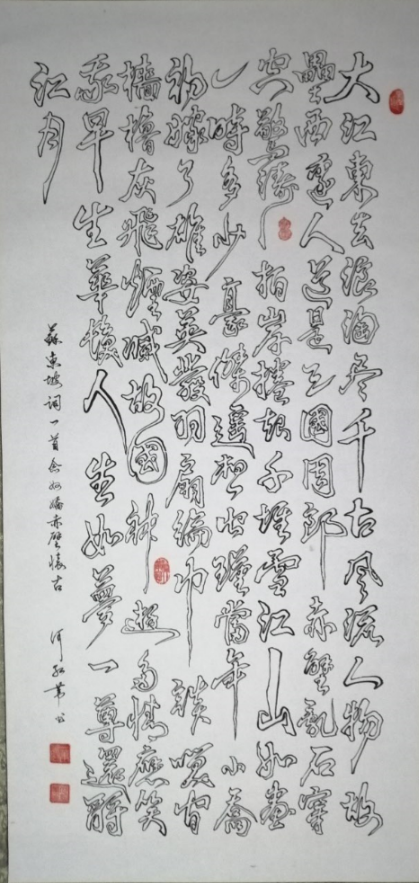 大江東去浪淘尽千古風流人物故
壘西邊人道是三國周郎赤壁亂石穿
空驚濤拍岸捲起千堆雪江山如畫
一時多少豪傑遙想公瑾當年小喬
初嫁了雄姿英發羽扇綸巾談笑間
檣櫓灰飛煙滅故國神遊多情應笑
我早生華髮人生如夢一尊還酹
江月
蘇東坡词一首念奴嬌赤壁懷古